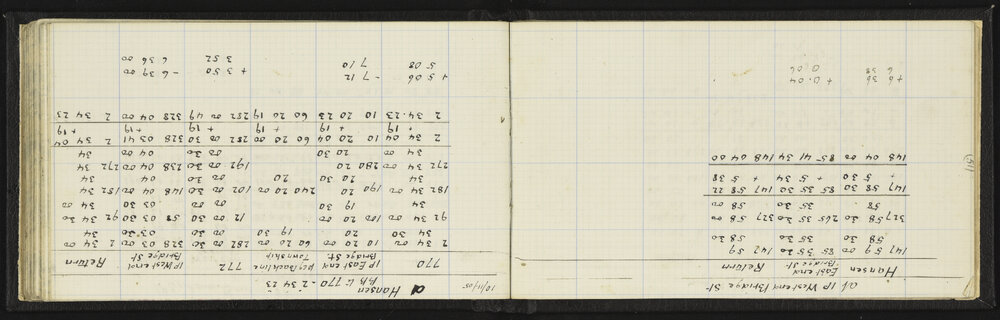 151
at IP West end Bridge St.
Hansen East end Return
Bridge St.
147 59 00 85 35 30 147 59
58 30 35 30 58 30
327 58 30 265 35 30 327 58 00
58 35 30 58 00
147 58 30 85 35 30 147 58 22
+ 5 30 + 5 34 + 5 38
148 04 00 85 41 34 148 04 00
+ 6 36 + 0.04
6 38 0.06
10/11/05 @ Hansen
770 - 2 34 23
770 IP East end Peg Backline 772 IP West end Return
Bridge St. Township Bridge St.
2 34 00 10 20 00 60 20 00 282 00 30 328 03 00 2 34 00
34 30 20 19 30 00 30 03 30 34
92 34 00 100 20 00 12 00 30 58 03 30 92 34 30
34 19 30 00 00 03 30 34 00
182 34 00 190 20 240 20 00 102 00 30 148 04 00 182 34
34 20 30 20 00 30 04 34
272 34 00 280 20 192 00 30 238 04 00 272 34
34 00 20 30 00 30 04 00 34
2 34 04 10 20 04 60 20 00 282 00 30 328 03 41 2 34 04
+ 19 + 19 + 19 + 19 + 19 + 19
2 34 23 10 20 23 60 20 19 282 00 49 328 04 00 2 34 23
+ 5 06 - 7 12 + 3 50 - 6 39 00
5 08 7 10 3 52 6 36 00